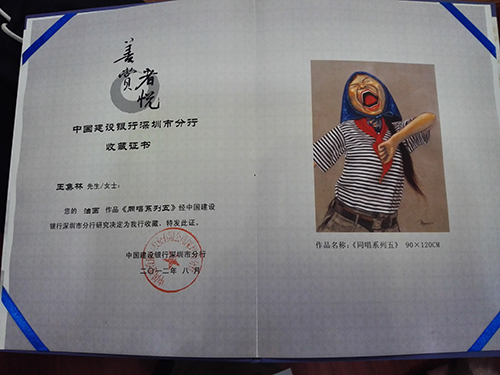 善者
赏悦
中国建设银行深圳市分行
收藏证书
王集林 先生/女士:
您的 油画 作品《同唱系列五》经中国建设
银行深圳市分行研究决定为我行收藏，特发此证。
中国建设银行深圳市分行
二〇一二年 八月
作品名称:《同唱系列五》 90×120CM